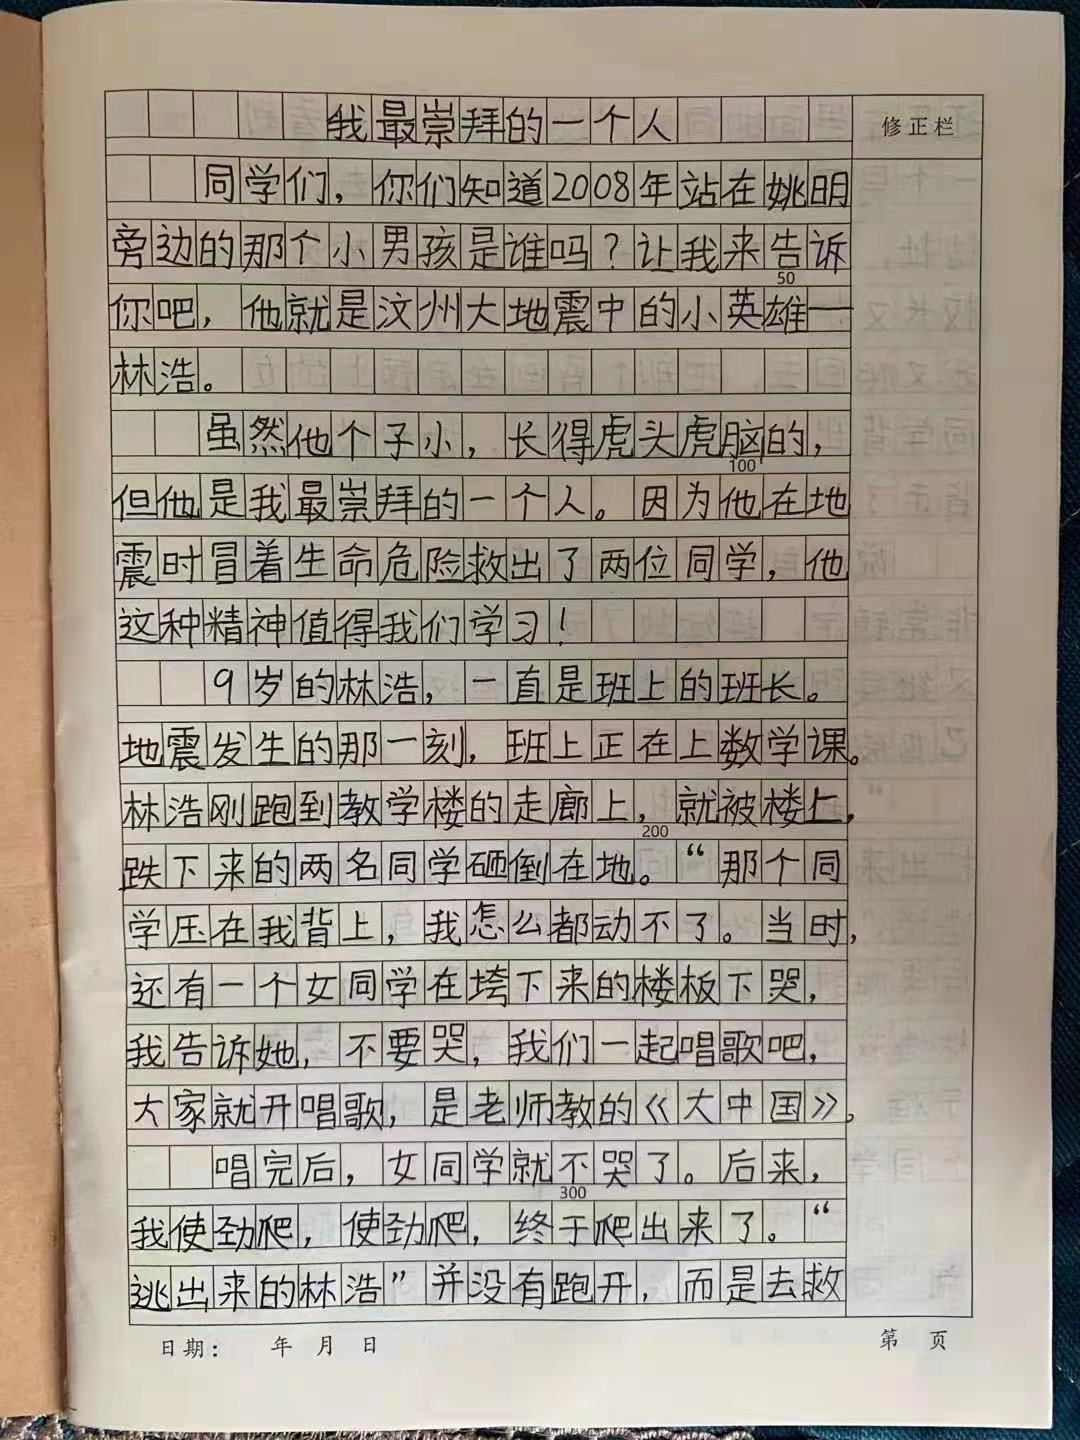 我最崇拜的一个人
修正栏
同学们，你们知道2008年站在姚明
旁边的那个小男孩是谁吗？让我来告诉
50
你吧，他就是汶州大地震中的小英雄一
林浩。
虽然他个子小，长得虎头虎脑的，
100
但他是我最崇拜的一个人。因为他在地
震时冒着生命危险救出了两位同学，他
这种精神值得我们学习！
9岁的林浩，一直是班上的班长。
地震发生的那一刻，班上正在上数学课。
林浩刚跑到教学楼的走廊上，就被楼上，
200
跌下来的两名同学砸倒在地。“那个同
学压在我背上，我怎么都动不了。当时，
还有一个女同学在垮下来的楼板下哭，
我告诉她，不要哭，我们一起唱歌吧，
大家就开唱歌，是老师教的《大中国》。
唱完后，女同学就不哭了。后来，
300
我使劲爬，使劲爬，终于爬出来了。“
逃出来的林浩”并没有跑开，而是去救
日期： 年 月 日
第 页